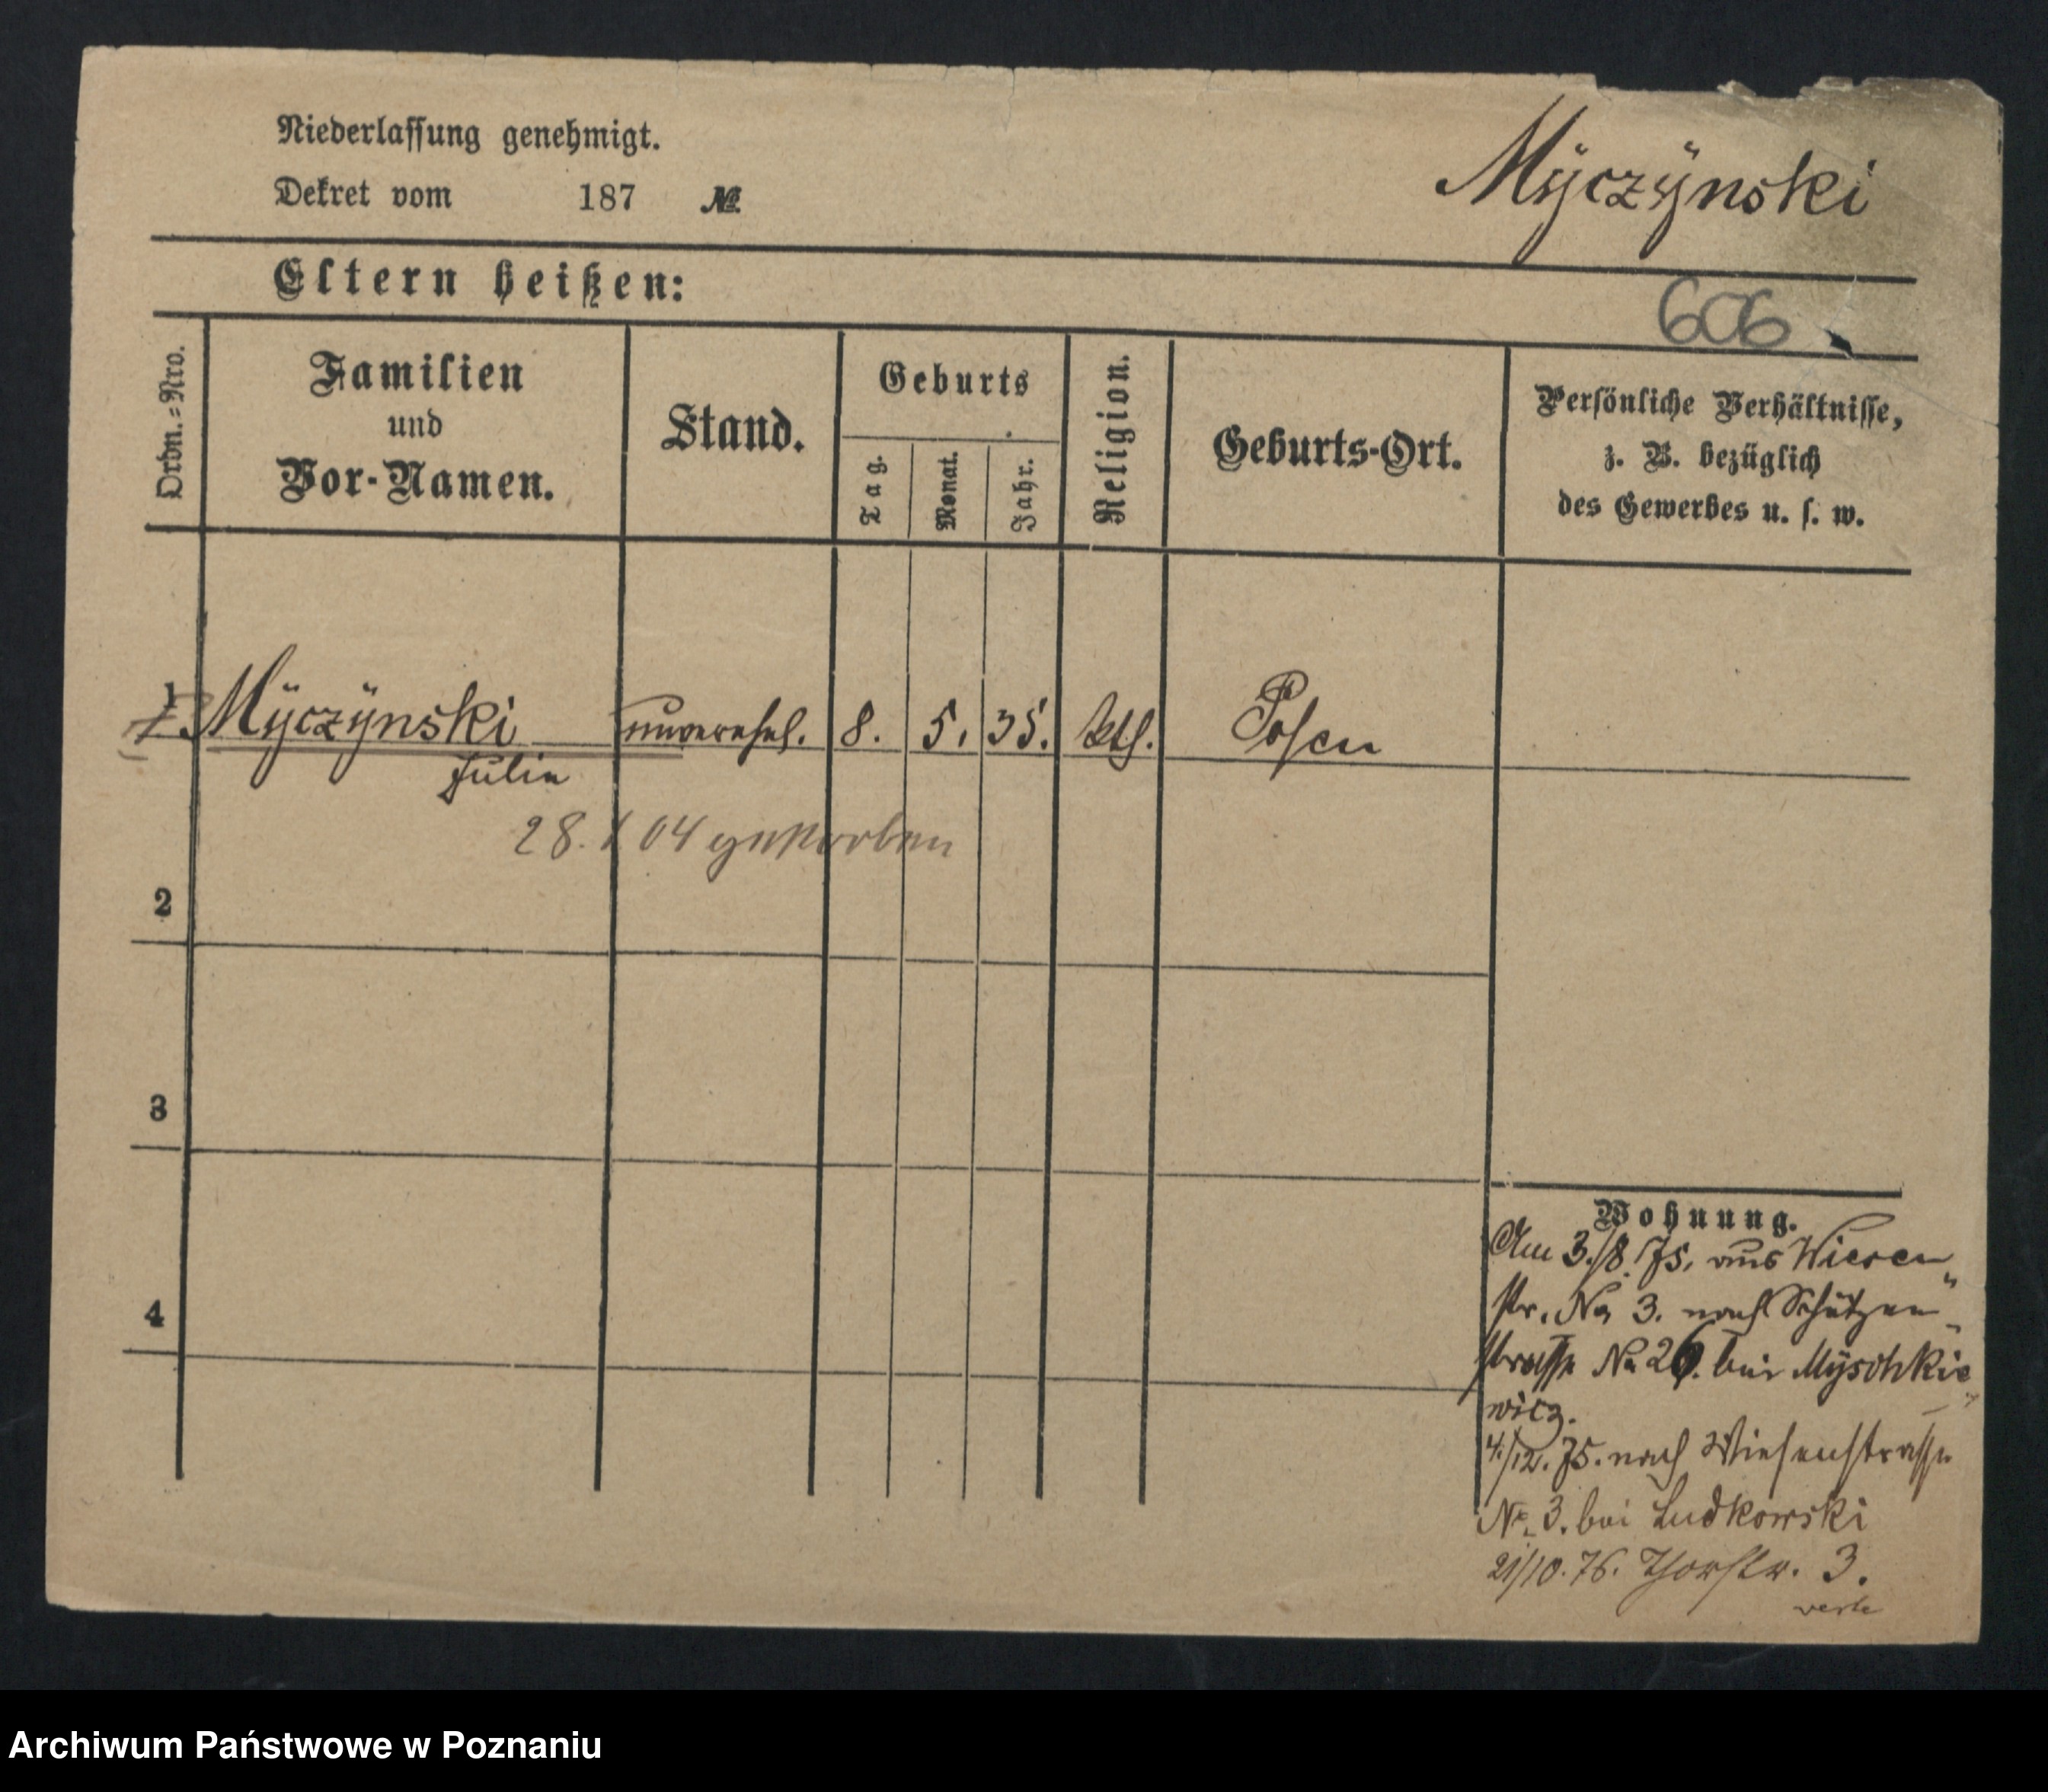 Niederlassung genehmigt.
Dekret vom 187 №
Mÿczÿnski
Eltern heißen:
606
Ordn.=Nro.
Familien
und
Vor-Namen.
Stand.
Geburts
Tag.
Monat.
Jahr.
Religion.
Geburts-Ort.
Persönliche Verhältnisse,
z. B. bezüglich
des Gewerbes u. s. w.
1 Mÿczÿnski unverehel. 8. 5. 35. kth. Posen
Julie
28. 04 gestorben
2
3
4
Wohnung.
Am 3./8. 75. aus Wiesen
str. No 3. nach Schützen
strasse No 26. bei Mÿschkie
wicz.
4./12. 75. nach Wiesenstrasse
No. 3. bei Ludkowski
21/10. 76. Thorstr. 3.
verte
Archiwum Państwowe w Poznaniu